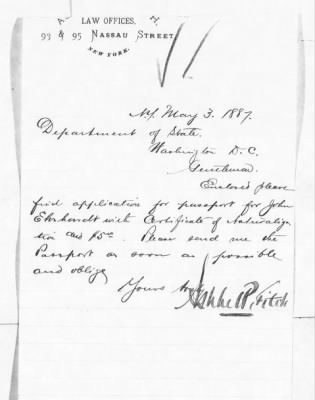 A. H.
LAW OFFICES,
93 & 95 NASSAU STREET,
NEW YORK.
N.Y. May 3. 1887.
Department of State.
Washington D.C.
Gentlemen.
Enclosed please
find application for passport for John
Ehrhardt with Certificate of Naturaliza
tion and $5.00 Please send me the
Passport as soon as possible
and oblige
Yours truly
Ashbel P. Fitch